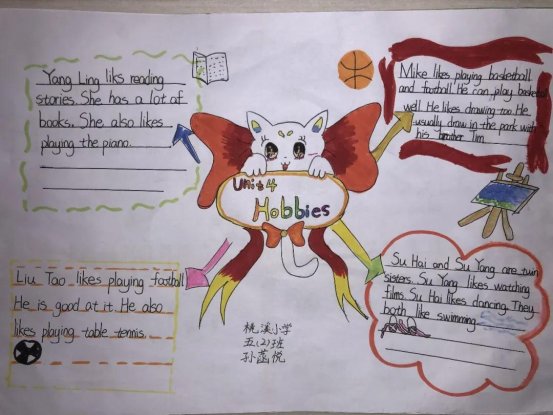 Yang Ling liks reading
stories. She has a lot of
books. She also likes
playing the piano.
Mike likes playing basketball
and football. He can play basketball
well. He likes drawing too. He
usually draw in the park with
his brother Tim.
Unit 4
Hobbies
Liu Tao likes playing football
He is good at it. He also
likes playing table tennis.
Su Hai and Su Yang are twin
sisters. Su Yang likes watching
films. Su Hai likes dancing. They
both like swimming
桃溪小学
五(2)班
孙菡悦